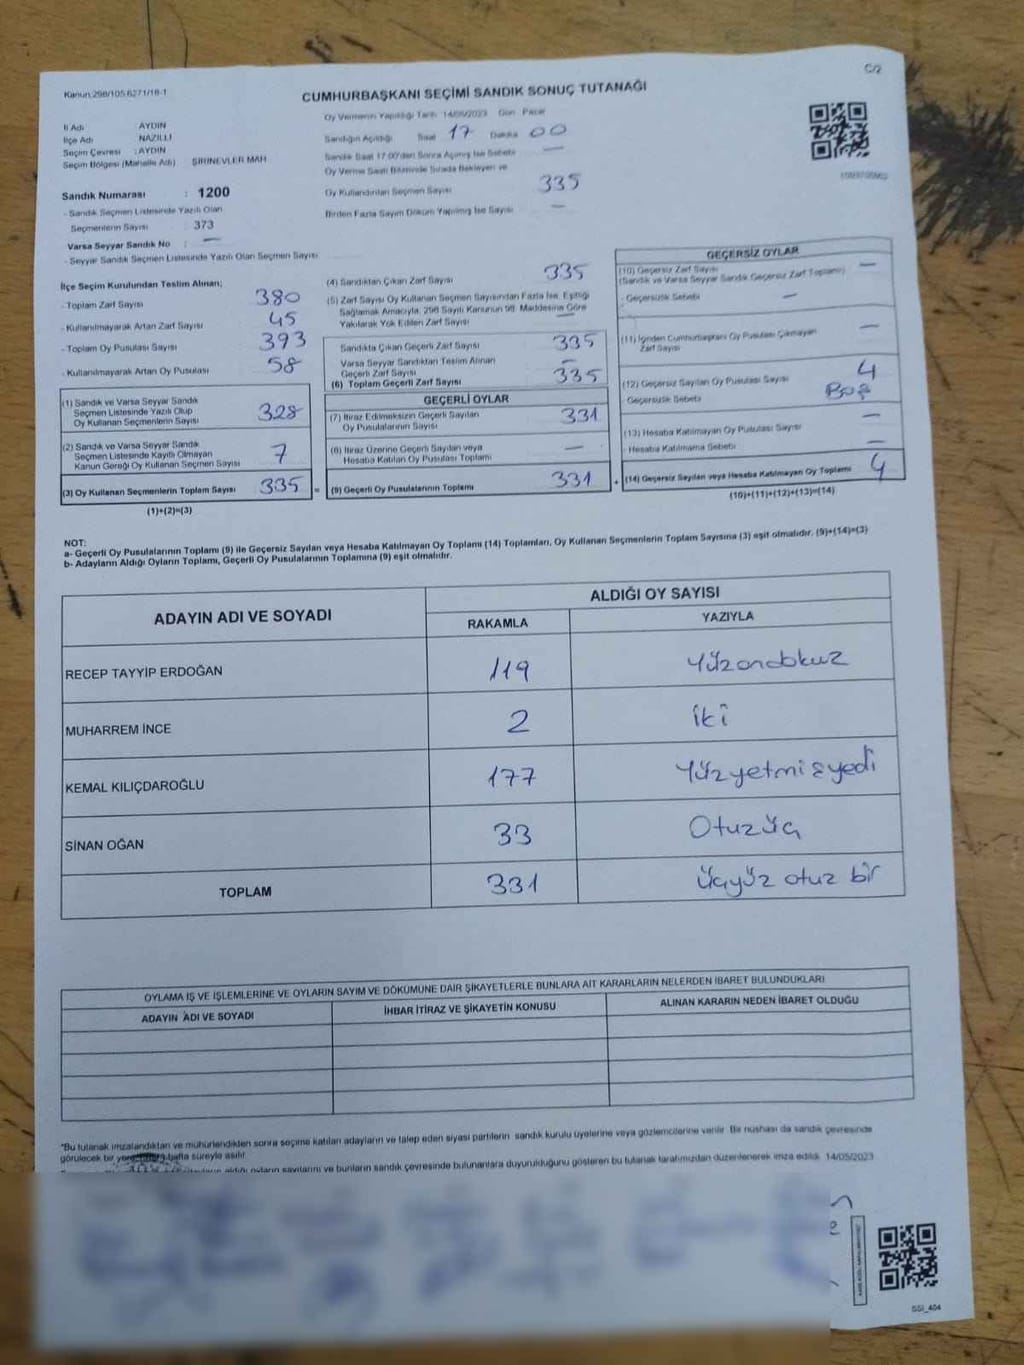 C/2
Kanun 298/105,6271/18-1
CUMHURBAŞKANI SEÇİMİ SANDIK SONUÇ TUTANAĞI
İl Adı AYDIN
İlçe Adı NAZİLLİ
Seçim Çevresi : AYDIN
Seçim Bölgesi (Mahalle Adı) ŞİRİNEVLER MAH
Sandık Numarası : 1200
- Sandık Seçmen Listesinde Yazılı Olan
Seçmenlerin Sayısı : 373
Varsa Seyyar Sandık No : —
- Seyyar Sandık Seçmen Listesinde Yazılı Olan Seçmen Sayısı
Oy Vermenin Yapıldığı Tarih 14/05/2023 Gün Pazar
Sandığın Açıldığı Saat 17 Dakika 00
Sandık Saat 17:00'den Sonra Açılmış İse Sebebi —
Oy Verme Saati Bitiminde Sırada Bekleyen ve
Oy Kullandırılan Seçmen Sayısı 335
Birden Fazla Sayım Döküm Yapılmış İse Sayısı —
İlçe Seçim Kurulundan Teslim Alınan;
- Toplam Zarf Sayısı 380
- Kullanılmayarak Artan Zarf Sayısı 45
- Toplam Oy Pusulası Sayısı 393
- Kullanılmayarak Artan Oy Pusulası 58
(1) Sandık ve Varsa Seyyar Sandık
Seçmen Listesinde Yazılı Olup
Oy Kullanan Seçmenlerin Sayısı 328
(2) Sandık ve Varsa Seyyar Sandık
Seçmen Listesinde Kayıtlı Olmayan
Kanun Gereği Oy Kullanan Seçmen Sayısı 7
(3) Oy Kullanan Seçmenlerin Toplam Sayısı 335 =
(1)+(2)=(3)
(4) Sandıktan Çıkan Zarf Sayısı 335
(5) Zarf Sayısı Oy Kullanan Seçmen Sayısından Fazla İse, Eşitliği
Sağlamak Amacıyla, 298 Sayılı Kanunun 98. Maddesine Göre
Yakılarak Yok Edilen Zarf Sayısı —
Sandıkta Çıkan Geçerli Zarf Sayısı 335
Varsa Seyyar Sandıktan Teslim Alınan
Geçerli Zarf Sayısı —
(6) Toplam Geçerli Zarf Sayısı 335
GEÇERLİ OYLAR
(7) İtiraz Edilmeksizin Geçerli Sayılan
Oy Pusulalarının Sayısı 331
(8) İtiraz Üzerine Geçerli Sayılan veya
Hesaba Katılan Oy Pusulası Toplamı —
(9) Geçerli Oy Pusulalarının Toplamı 331 +
GEÇERSİZ OYLAR
(10) Geçersiz Zarf Sayısı —
(Sandık ve Varsa Seyyar Sandık Geçersiz Zarf Toplamı)
- Geçersizlik Sebebi —
(11) İçinden Cumhurbaşkanı Oy Pusulası Çıkmayan
Zarf Sayısı —
(12) Geçersiz Sayılan Oy Pusulası Sayısı 4
Geçersizlik Sebebi Boş
(13) Hesaba Katılmayan Oy Pusulası Sayısı —
- Hesaba Katılmama Sebebi —
(14) Geçersiz Sayılan veya Hesaba Katılmayan Oy Toplamı 4
(10)+(11)+(12)+(13)=(14)
NOT:
a- Geçerli Oy Pusulalarının Toplamı (9) ile Geçersiz Sayılan veya Hesaba Katılmayan Oy Toplamı (14) Toplamları, Oy Kullanan Seçmenlerin Toplam Sayısına (3) eşit olmalıdır. (9)+(14)=(3)
b- Adayların Aldığı Oyların Toplamı, Geçerli Oy Pusulalarının Toplamına (9) eşit olmalıdır.
ADAYIN ADI VE SOYADI ALDIĞI OY SAYISI
RAKAMLA YAZIYLA
RECEP TAYYİP ERDOĞAN 119 Yüzondokuz
MUHARREM İNCE 2 iki
KEMAL KILIÇDAROĞLU 177 Yüzyetmişyedi
SİNAN OĞAN 33 Otuzüç
TOPLAM 331 üçyüz otuz bir
OYLAMA İŞ VE İŞLEMLERİNE VE OYLARIN SAYIM VE DÖKÜMÜNE DAİR ŞİKAYETLERLE BUNLARA AİT KARARLARIN NELERDEN İBARET BULUNDUKLARI
ADAYIN ADI VE SOYADI İHBAR İTİRAZ VE ŞİKAYETİN KONUSU ALINAN KARARIN NEDEN İBARET OLDUĞU
*Bu tutanak imzalandıktan ve mühürlendikten sonra seçime katılan adayların ve talep eden siyasi partilerin sandık kurulu üyelerine veya gözlemcilerine verilir. Bir nüshası da sandık çevresinde
görülecek bir yere hafta süreyle asılır.
aldığı oyların sayılarını ve bunların sandık çevresinde bulunanlara duyurulduğunu gösteren bu tutanak tarafımızdan düzenlenerek imza edildi. 14/05/2023
SSI_404